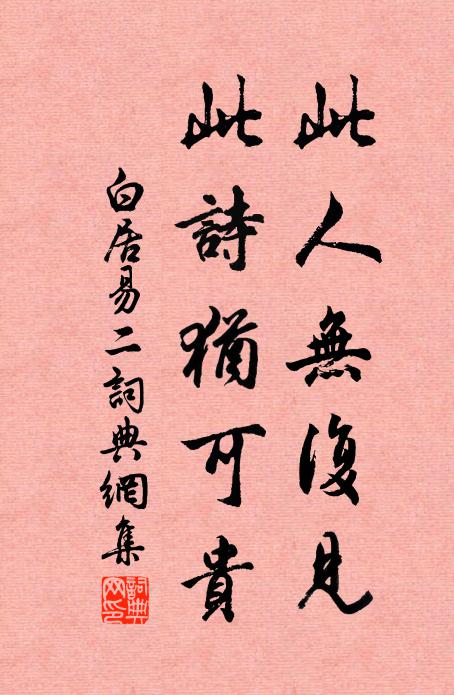 此人無復見
此詩猶可貴
白居易二詞典網集
詞典網印